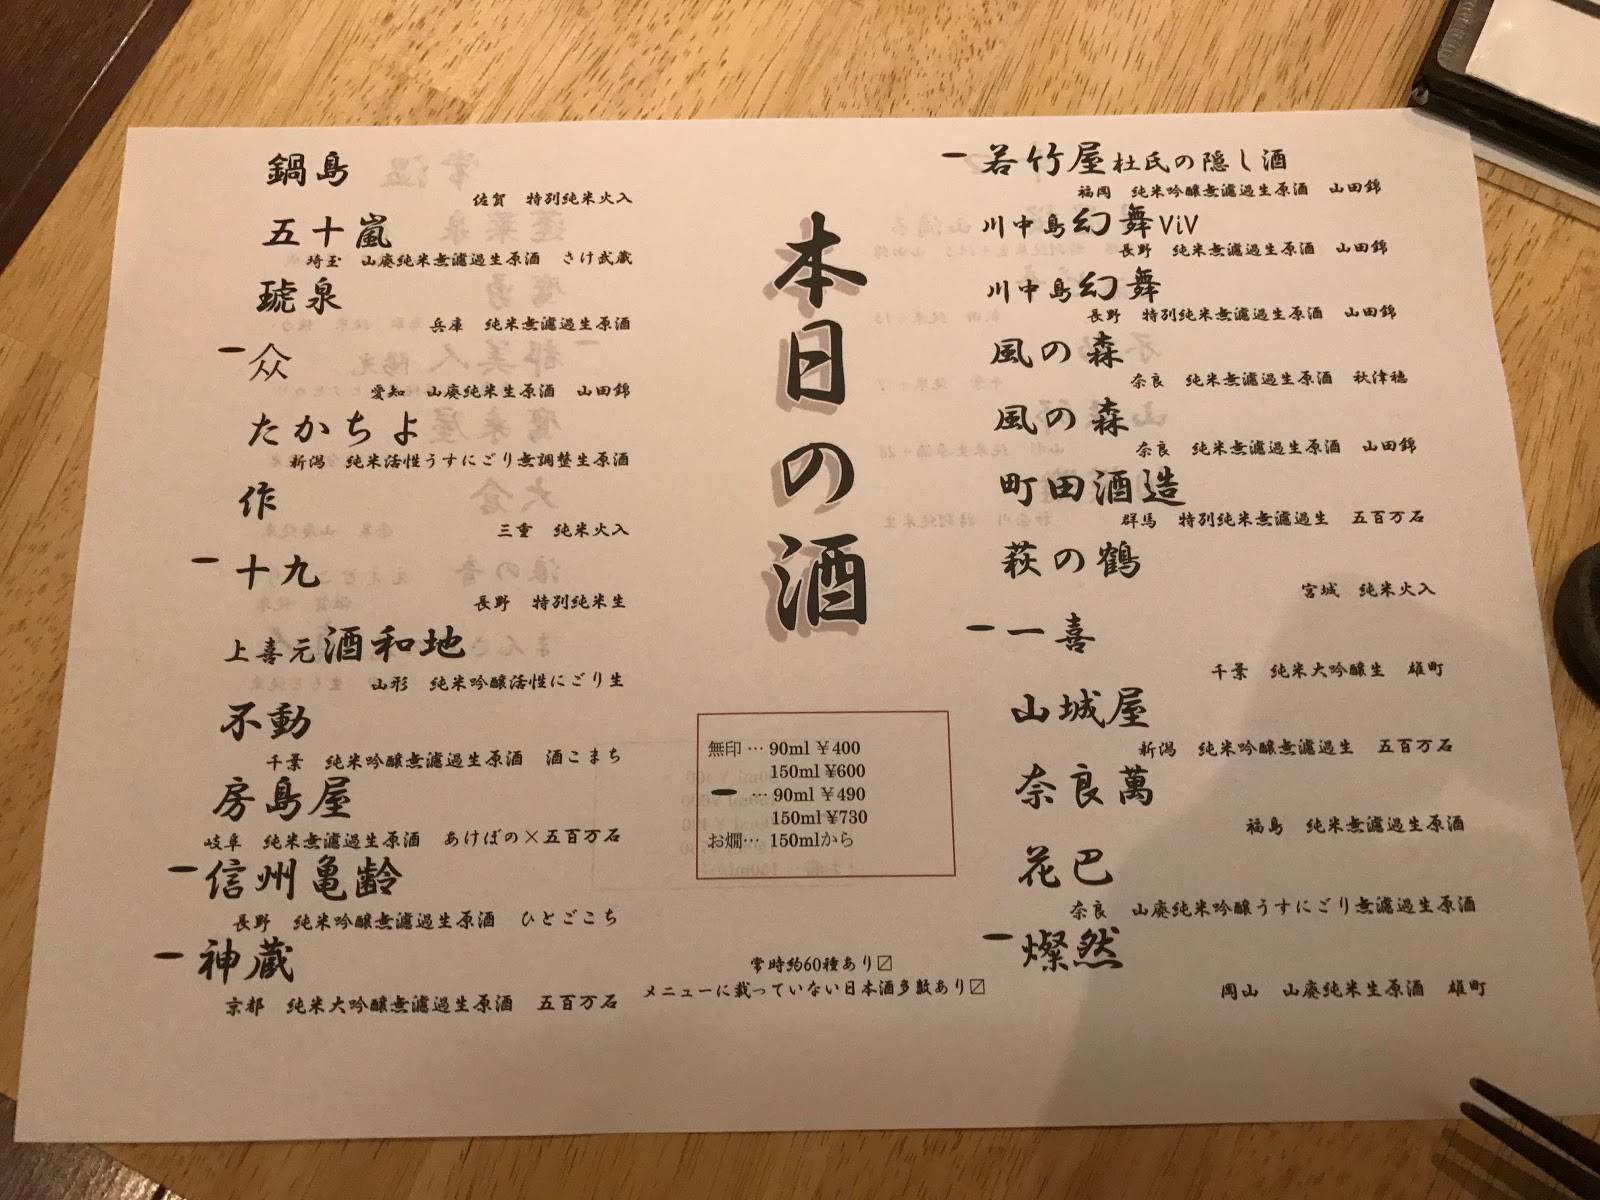 本日の酒
鍋島
佐賀 特別純米火入
五十嵐
埼玉 山廃純米無濾過生原酒 さけ武蔵
琥泉
兵庫 純米無濾過生原酒
ー 众
愛知 山廃純米生原酒 山田錦
たかちよ
新潟 純米活性うすにごり無調整生原酒
作
三重 純米火入
ー 十九
長野 特別純米生
上喜元酒和地
山形 純米吟醸活性にごり生
不動
千葉 純米吟醸無濾過生原酒 酒こまち
房島屋
岐阜 純米無濾過生原酒 あけぼの×五百万石
ー 信州亀齢
長野 純米吟醸無濾過生原酒 ひとごこち
ー 神蔵
京都 純米大吟醸無濾過生原酒 五百万石
無印… 90ml ¥400
150ml ¥600
ー … 90ml ¥490
150ml ¥730
お燗… 150mlから
常時約60種あり〼
メニューに載っていない日本酒多数あり〼
ー 若竹屋杜氏の隠し酒
福岡 純米吟醸無濾過生原酒 山田錦
川中島幻舞ViV
長野 純米無濾過生原酒 山田錦
川中島幻舞
長野 特別純米無濾過生原酒 山田錦
風の森
奈良 純米無濾過生原酒 秋津穂
風の森
奈良 純米無濾過生原酒 山田錦
町田酒造
群馬 特別純米無濾過生 五百万石
萩の鶴
宮城 純米火入
ー 一喜
千葉 純米大吟醸生 雄町
山城屋
新潟 純米無濾過生 五百万石
奈良萬
福島 純米無濾過生原酒
花巴
奈良 山廃純米吟醸うすにごり無濾過生原酒
ー 燦然
岡山 山廃純米生原酒 雄町